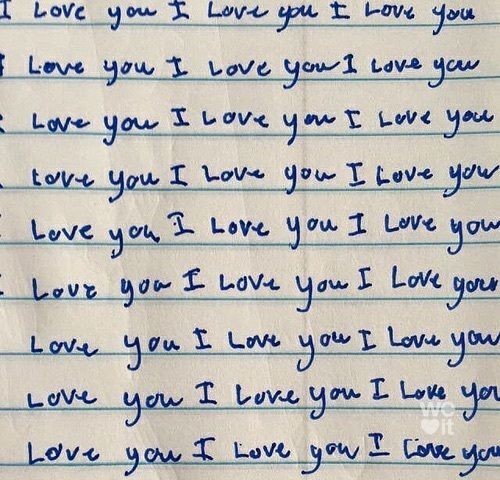 I Love you I Love you I Love you
I Love you I Love you I Love you
Love you I Love you I Love you
Love you I Love you I Love you
Love you I Love you I Love you
I Love you I Love you I Love your
Love you I Love you I Love you
Love you I Love you I Love you
Love you I Love you I Love you
We
it